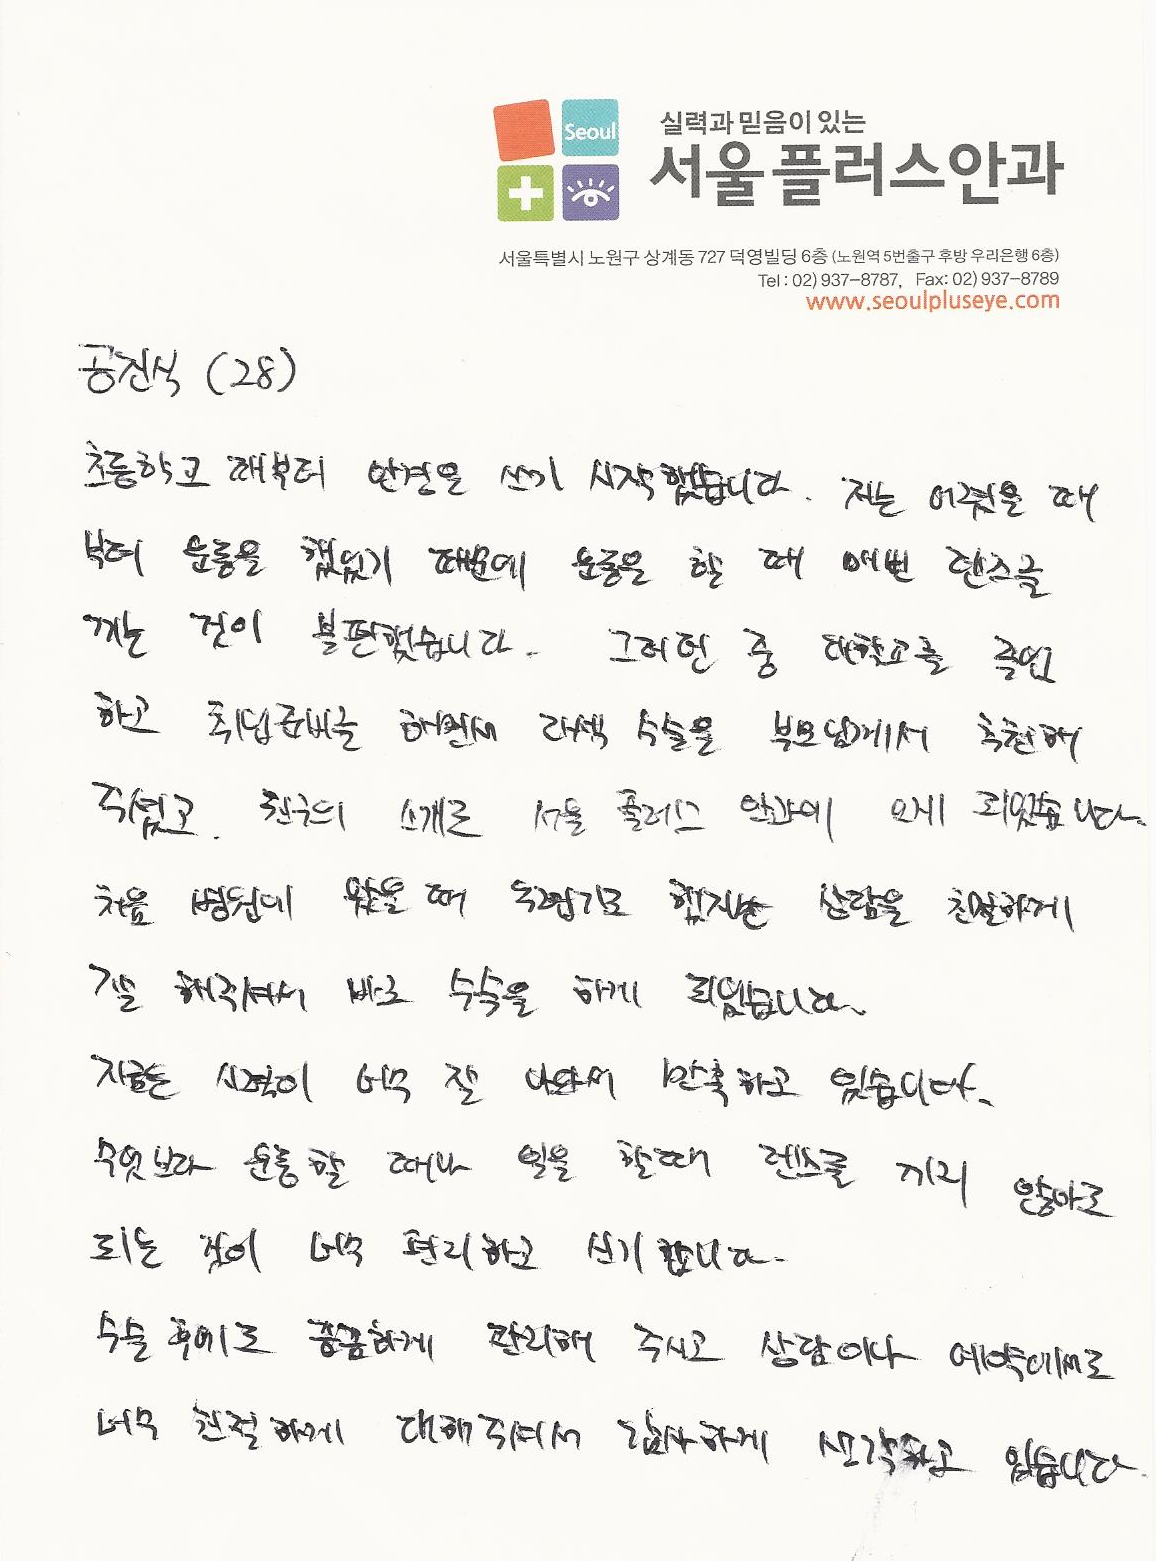 Seoul
실력과 믿음이 있는
서울플러스안과
서울특별시 노원구 상계동 727 덕영빌딩 6층 (노원역 5번출구 후방 우리은행 6층)
Tel : 02) 937-8787,  Fax: 02) 937-8789
www.seoulpluseye.com
공진식 (28)
초등학교 때부터 안경을 쓰기 시작했습니다. 저는 어렸을 때
부터 운동을 했었기 때문에 운동을 할 때 매번 렌즈를
끼는 것이 불편했습니다. 그러던 중 대학교를 졸업
하고 취업준비를 해면서 라섹 수술을 부모님께서 추천해
주셨고. 친구의 소개로 서울 플러스 안과에 오게 되었습니다.
처음 병원에 왔을 때 걱정하기도 했지만 상담을 친절하게
잘 해주셔서 바로 수술을 하게 되었습니다.
지금은 시력이 너무 잘 나와서 만족하고 있습니다.
무엇보다 운동할 때나 일을 할때 렌즈를 끼지 않아도
되는 것이 너무 편리하고 신기합니다.
수술 후에도 꼼꼼하게 관리해 주시고 상담이나 예약에서도
너무 친절하게 대해주셔서 감사하게 생각하고 있습니다